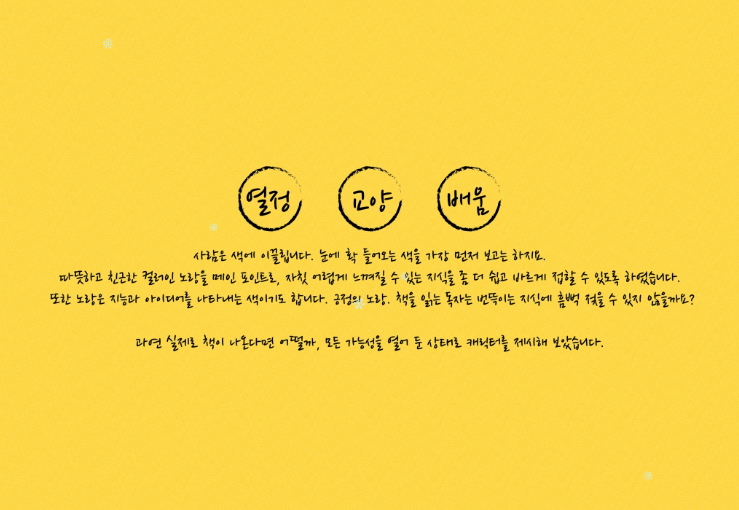 열정 교양 배움
사람은 색에 이끌립니다. 눈에 확 들어오는 색을 가장 먼저 보고는 하지요.
따뜻하고 친근한 컬러인 노랑을 메인 포인트로, 자칫 어렵게 느껴질 수 있는 지식을 좀 더 쉽고 바르게 접할 수 있도록 하였습니다.
또한 노랑은 지능과 아이디어를 나타내는 색이기도 합니다. 긍정의 노랑. 책을 읽는 독자는 번뜩이는 지식에 흠뻑 젖을 수 있지 않을까요?
과연 실제로 책이 나온다면 어떨까, 모든 가능성을 열어 둔 상태로 캐릭터를 제시해 보았습니다.